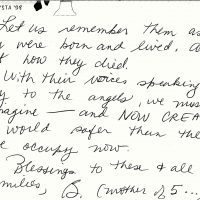 YSTA '98
Let us remember them as
y were born and lived, a
t how they died.
With their voices speaking
y to the angels, we mus
agine — and NOW CREA
world safer than the
e occupy now.
Blessings to these & all
milies, B. (mother of 5...